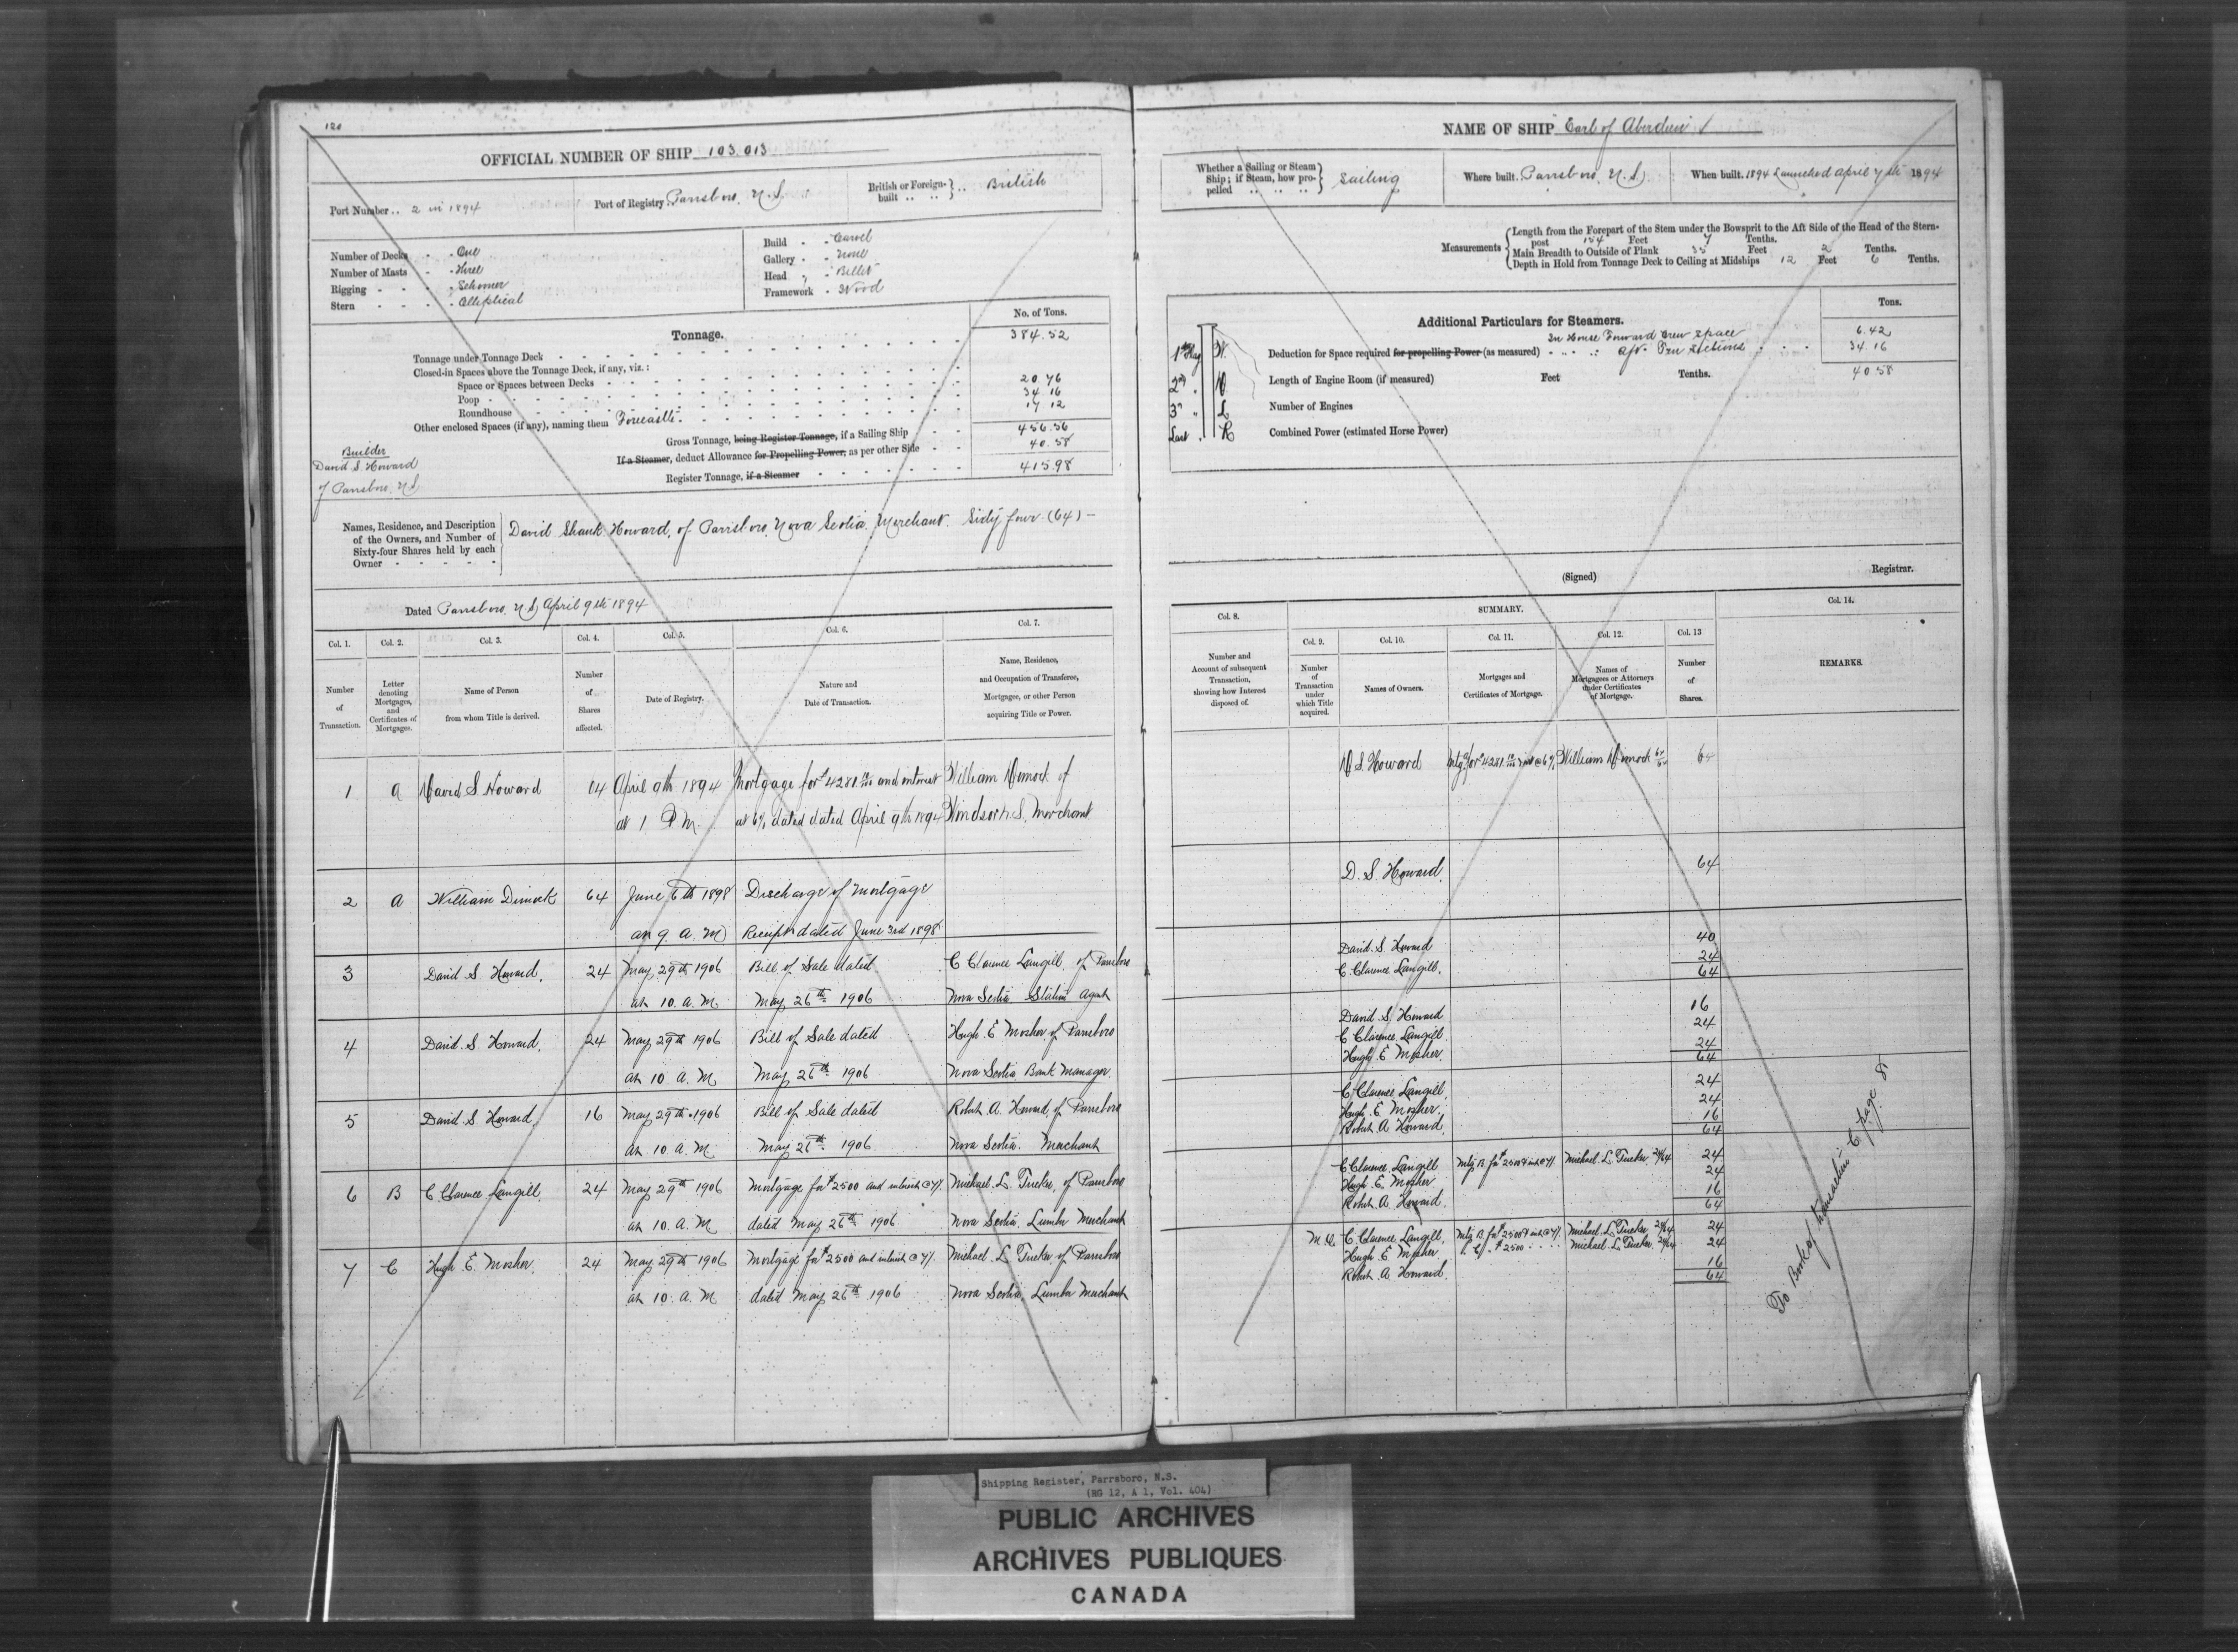 120
OFFICIAL NUMBER OF SHIP 103.013
Port Number .. 2 in 1894
Port of Registry Parrsboro, N.S.
British or Foreign-built .. .. } .. British
Number of Decks - - One
Number of Masts - - Three
Rigging - - - - Schooner
Stern - - - - Elliptical
Build - - Carvel
Gallery - - None
Head - - Billet
Framework - Wood
Tonnage.
No. of Tons.
Tonnage under Tonnage Deck 384.52
Closed-in Spaces above the Tonnage Deck, if any, viz.:
Space or Spaces between Decks
Poop 20.76
Roundhouse 34.16
Other enclosed Spaces (if any), naming them Forecastle 17.12
Gross Tonnage, being Register Tonnage, if a Sailing Ship 456.56
If a Steamer, deduct Allowance for Propelling Power, as per other Side 40.58
Register Tonnage, if a Steamer 415.98
Builder
David S. Howard
of Parrsboro, N.S.
Names, Residence, and Description of the Owners, and Number of Sixty-four Shares held by each Owner - - - - -
David Shank Howard, of Parrsboro, Nova Scotia, Merchant. Sixty four (64) -
Dated Parrsboro, N.S. April 9th 1894
Col. 1. Col. 2. Col. 3. Col. 4. Col. 5. Col. 6. Col. 7.
Number of Transaction.
Letter denoting Mortgages, and Certificates of Mortgages.
Name of Person from whom Title is derived.
Number of Shares affected.
Date of Registry.
Nature and Date of Transaction.
Name, Residence, and Occupation of Transferee, Mortgagee, or other Person acquiring Title or Power.
1 A David S Howard 64 April 9th 1894 Mortgage for $4281 and interest William Dimock of
at 1 P.M. at 6% dated dated April 9th 1894 Windsor N.S. Merchant
2 A William Dimock 64 June 6th 1898 Discharge of Mortgage
at 9 a.m. Receipt dated June 3rd 1898
3 David S Howard. 24 May 29th 1906 Bill of Sale dated C Clarence Langill of Parrsboro
at 10. a.m. May 26th 1906 Nova Scotia Station Agent
4 David S Howard. 24 May 29th 1906 Bill of Sale dated Hugh E Mosher of Parrsboro
at 10. a.m. May 26th 1906 Nova Scotia Bank Manager
5 David S Howard. 16 May 29th 1906 Bill of Sale dated Robert A. Howard, of Parrsboro
at 10. a.m. May 26th 1906 Nova Scotia. Merchant
6 B C. Clarence Langill. 24 May 29th 1906 Mortgage for $2500 and interest @ 7% Michael L. Tucker, of Parrsboro
at 10. a.m. dated May 26th 1906 Nova Scotia. Lumber Merchant
7 C Hugh E Mosher. 24 May 29th 1906 Mortgage for $2500 and interest @ 7% Michael L Tucker of Parrsboro
at 10. a.m. dated May 26th 1906 Nova Scotia. Lumber Merchant
NAME OF SHIP "Earl of Aberdeen"
Whether a Sailing or Steam Ship; if Steam, how propelled .. .. .. } Sailing
Where built. Parrsboro, N.S.
When built. 1894 Launched April 7th 1894
Measurements
Length from the Forepart of the Stem under the Bowsprit to the Aft Side of the Head of the Sternpost 154 Feet 7 Tenths.
Main Breadth to Outside of Plank 35 Feet 2 Tenths.
Depth in Hold from Tonnage Deck to Ceiling at Midships 12 Feet 6 Tenths.
Additional Particulars for Steamers.
Tons.
In House Forward Crew Space 6.42
Deduction for Space required for propelling Power (as measured) - - - Aft 34.16
40.58
Length of Engine Room (if measured) Feet Tenths.
Number of Engines
Combined Power (estimated Horse Power)
1st Flag W.
2nd " V.
3rd " L
Last " R
(Signed) Registrar.
Col. 8. SUMMARY. Col. 14.
Col. 9. Col. 10. Col. 11. Col. 12. Col. 13
Number and Account of subsequent Transaction, showing how Interest disposed of.
Number of Transaction under which Title acquired.
Names of Owners.
Mortgages and Certificates of Mortgage.
Names of Mortgagees or Attorneys under Certificates of Mortgage.
Number of Shares.
REMARKS.
D S Howard Mtg for $4281 int @ 6% William Dimock 64/64 64
D. S. Howard. 64
David. S. Howard 40
C. Clarence Langill. 24
64
David. S. Howard 16
C Clarence Langill 24
Hugh E Mosher 24
64
C Clarence Langill. 24
Hugh E. Mosher. 24
Robert A Howard. 16
64
C Clarence Langill Mtg B for $2500 & int @ 7% Michael L. Tucker 24/64 24
Hugh E. Mosher 24
Robert A Howard. 16
64
C. Clarence Langill, Mtg B for $2500 & int @ 7% Michael L. Tucker 24/64 24
Hugh E Mosher " C " $2500 Michael L. Tucker 24/64 24
Robert A Howard. 16
64
To Book of transaction C page 8
Shipping Register, Parrsboro, N.S.
(RG 12, A 1, Vol. 404)
PUBLIC ARCHIVES
ARCHIVES PUBLIQUES
CANADA